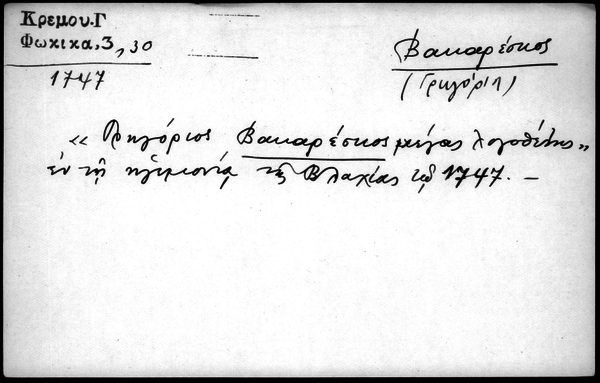 Κρεμου.Γ
Φωκικα,3,30
1747
Βακαρέσκος
(Γρηγόριος)
«Γρηγόριος Βακαρέσκος μέγας λογοθέτης»
ἐν τῇ ἡγεμονίᾳ τῆς Βλαχίας τῷ 1747. —